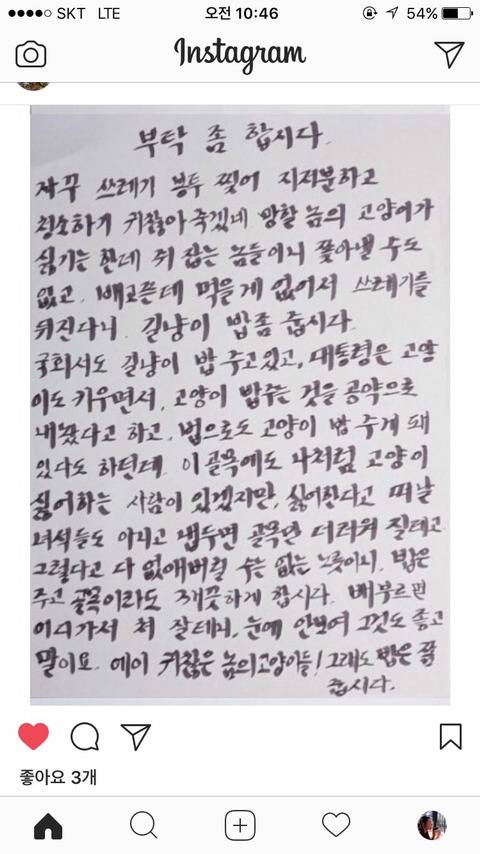 SKT LTE 오전 10:46 54%
Instagram
부탁 좀 합시다.
자꾸 쓰레기 봉투 찢어 지저분하고
청소하기 귀찮아 죽겠네 망할 놈의 고양이가
싫기는 한데 쥐 잡는 놈들이니 쫓아낼 수도
없고, 배고픈데 먹을게 없어서 쓰레기를
뒤진다니 길냥이 밥좀 줍시다.
국회서도 길냥이 밥 주고있고, 대통령은 고양
이도 키우면서, 고양이 밥주는 것을 공약으로
내놨다고 하고, 법으로도 고양이 밥 주게 돼
있다도 하던데. 이 골목에도 나처럼 고양이
싫어하는 사람이 있겠지만, 싫어한다고 떠날
녀석들도 아니고 냅두면 골목만 더러워 질테고
그렇다고 다 없애버릴 수는 없는 노릇이니, 밥은
주고 골목이라도 깨끗하게 합시다. 배부르면
어디가서 쳐 잘테니, 눈에 안보여 그것도 좋고
말이요. 에이 귀찮은 놈의고양이들! 그래도 밥은 꼭
줍시다.
좋아요 3개